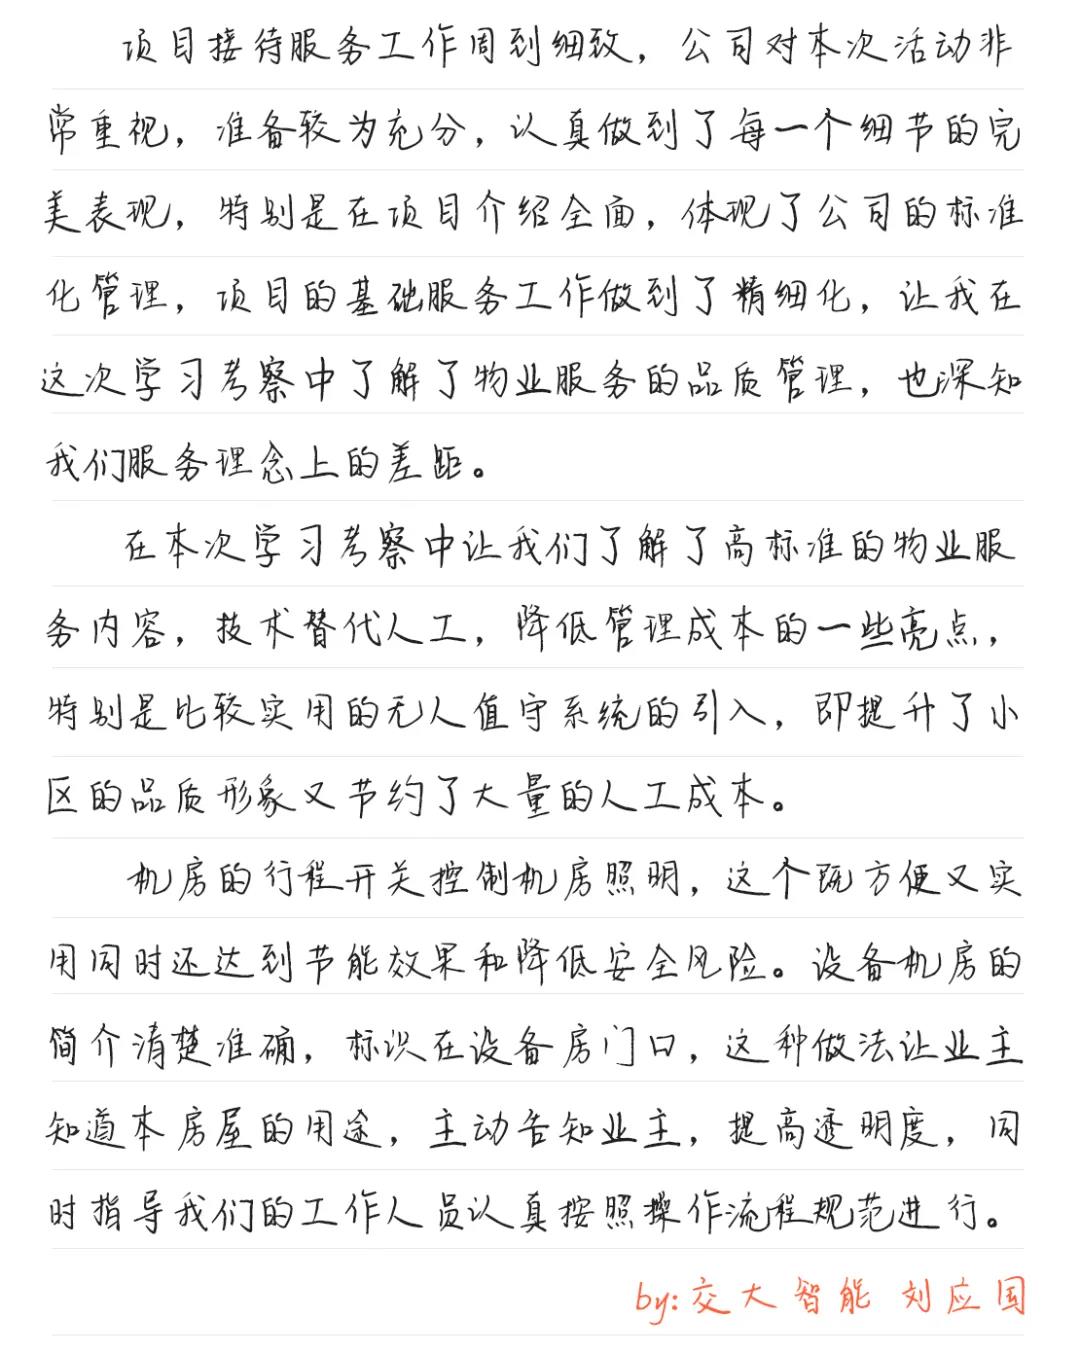 项目接待服务工作周到细致，公司对本次活动非
常重视，准备较为充分，认真做到了每一个细节的完
美表现，特别是在项目介绍全面，体现了公司的标准
化管理，项目的基础服务工作做到了精细化，让我在
这次学习考察中了解了物业服务的品质管理，也深知
我们服务理念上的差距。
在本次学习考察中让我们了解了高标准的物业服
务内容，技术替代人工，降低管理成本的一些亮点，
特别是比较实用的无人值守系统的引入，即提升了小
区的品质形象又节约了大量的人工成本。
机房的行程开关控制机房照明，这个既方便又实
用同时还达到节能效果和降低安全风险。设备机房的
简介清楚准确，标识在设备房门口，这种做法让业主
知道本房屋的用途，主动告知业主，提高透明度，同
时指导我们的工作人员认真按照操作流程规范进行。
by:交大智能 刘应国